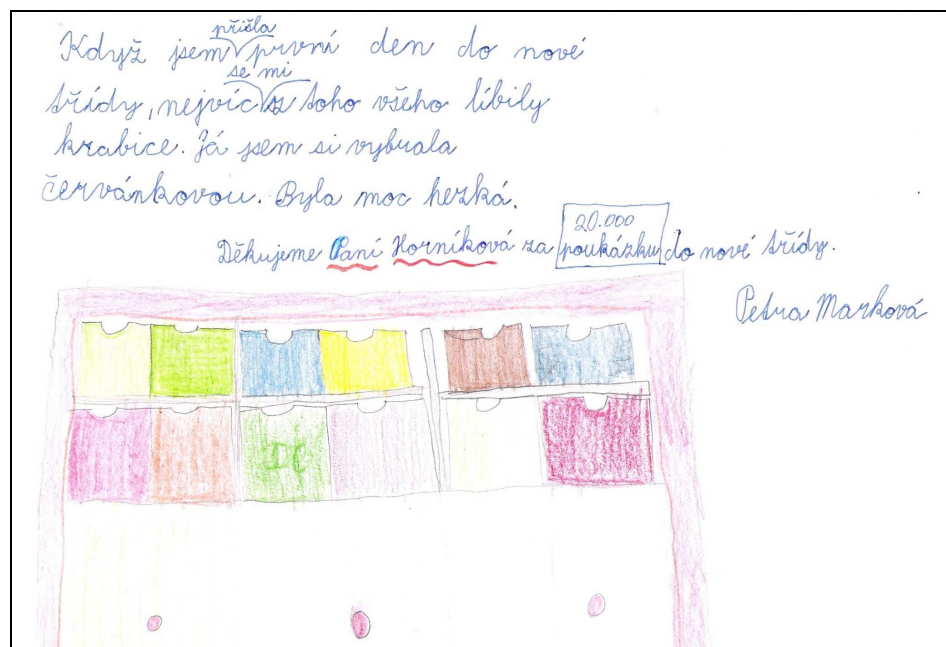 přišla
Když jsem první den do nové
se mi
třídy, nejvíc z toho všeho líbily
krabice. Já jsem si vybrala
červánkovou. Byla moc hezká.
20.000
Děkujeme Paní Horníková za poukázku do nové třídy.
Petra Marková